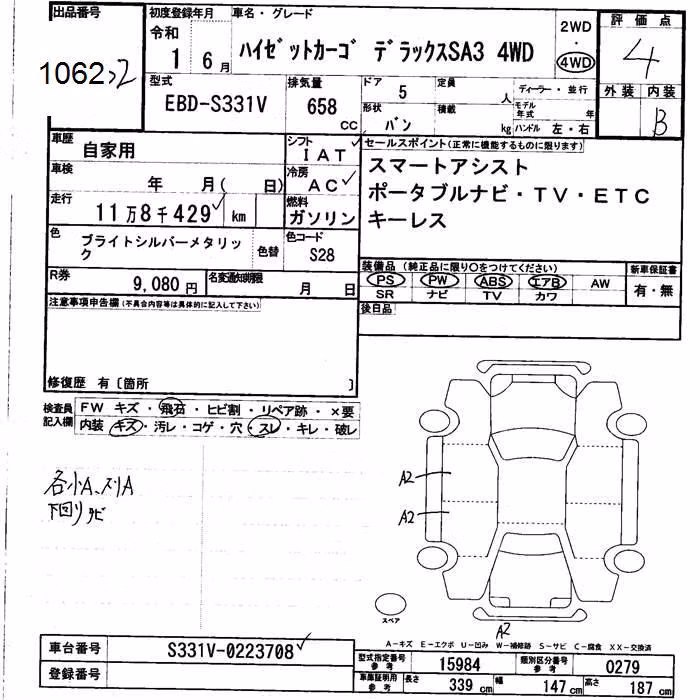 出品番号
106222
初度登録年月
令和
1 6月
車名・グレード
ハイゼットカーゴ デラックスSA3 4WD
2WD
・
4WD
評価点
4
外装 内装
B
型式
EBD-S331V
排気量
658
CC
ドア
5
形状
バン
定員
人
積載
kg
ディーラー・並行
モデル年式
年
ハンドル 左・右
車歴
自家用
シフト
IAT
車検
年 月( 日)
冷房
AC
走行
11万8千429 km
燃料
ガソリン
セールスポイント(正常に機能するものに限ります)
スマートアシスト
ポータブルナビ・TV・ETC
キーレス
色
ブライトシルバーメタリック
色替
色コード
S28
R券
9,080円
名変通知期限
月 日
装備品 (純正品に限り○をつけてください)
PS PW ABS エアB AW
SR ナビ TV カワ
新車保証書
有・無
注意事項申告欄(不具合内容等は具体的に記入して下さい)
後日品
修復歴 有〔箇所 〕
検査員記入欄
FW キズ・飛石・ヒビ割・リペア跡・×要
内装 キズ・汚レ・コゲ・穴・スレ・キレ・破レ
各小A、スリA
下回りサビ
A2
A2
A2
スペア
A-キズ E-エクボ U-凹み W-補修跡 S-サビ C-腐食 XX-交換済
車台番号
S331V-0223708
登録番号
型式指定番号
参考
15984
類別区分番号
参考
0279
車庫証明用
参考
長さ
339 cm
幅
147 cm
高さ
187 cm